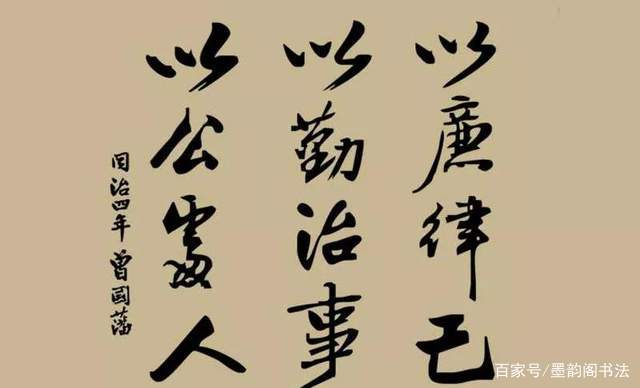 以廉律己
以勤治事
以公處人
同治四年 曾國藩
百家号/墨韵阁书法